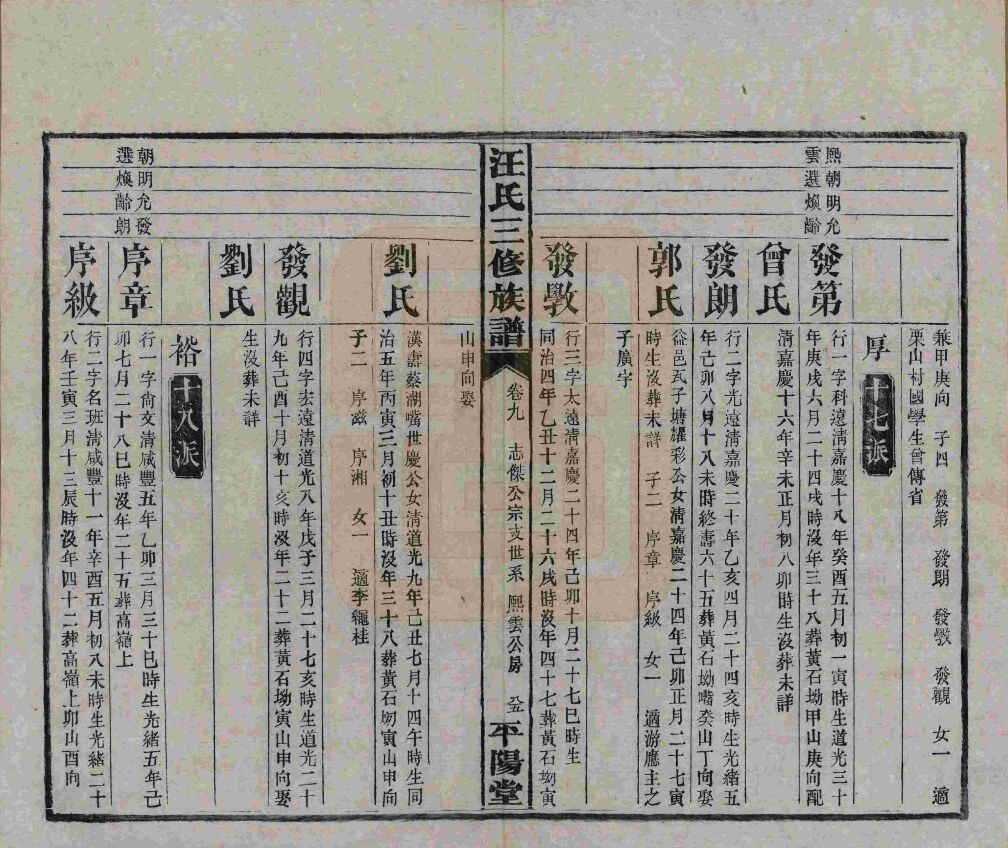 兼甲庚向　子四　發第　發朗　發斆　發觀　女一　適
栗山村國學生曾傳省
厚
十七派
熙朝明允
雲選煥齡
發第
行一字科遠清嘉慶十八年癸酉五月初一寅時生道光三十
年庚戌六月二十四戌時沒年三十八葬黃石坳甲山庚向配
曾氏
清嘉慶十六年辛未正月初八卯時生沒葬未詳
發朗
行二字光遠清嘉慶二十年乙亥四月二十四亥時生光緒五
年己卯八月十八未時終壽六十五葬黃石坳嘴癸山丁向娶
郭氏
益邑瓦子塘耀彩公女清嘉慶二十四年己卯正月二十七寅
時生沒葬未詳　子二　序章　序級　女一　適游應主之
子廣宇
發斆
行三字太遠清嘉慶二十四年己卯十月二十七巳時生
同治四年乙丑十二月二十六戌時沒年四十七葬黃石坳寅
汪氏三修族譜
卷九　志傑公宗支世系　熙雲公房
平陽堂
山申向娶
劉氏
漢壽蔡湖嘴世慶公女清道光九年己丑七月十四午時生同
治五年丙寅三月初十丑時沒年三十八葬黃石坳寅山申向
子二　序滋　序湘　女一　適李繩桂
發觀
行四字宏遠清道光八年戊子三月二十七亥時生道光二十
九年己酉十月初十亥時沒年二十二葬黃石坳寅山申向娶
劉氏
生沒葬未詳
裕
十八派
朝明允發
選煥齡朗
序章
行一字尚文清咸豐五年乙卯三月三十巳時生光緒五年己
卯七月二十八巳時沒年二十五葬高嶺上
序級
行二字名班清咸豐十一年辛酉五月初八未時生光緒二十
八年壬寅三月十三辰時沒年四十二葬高嶺上卯山酉向